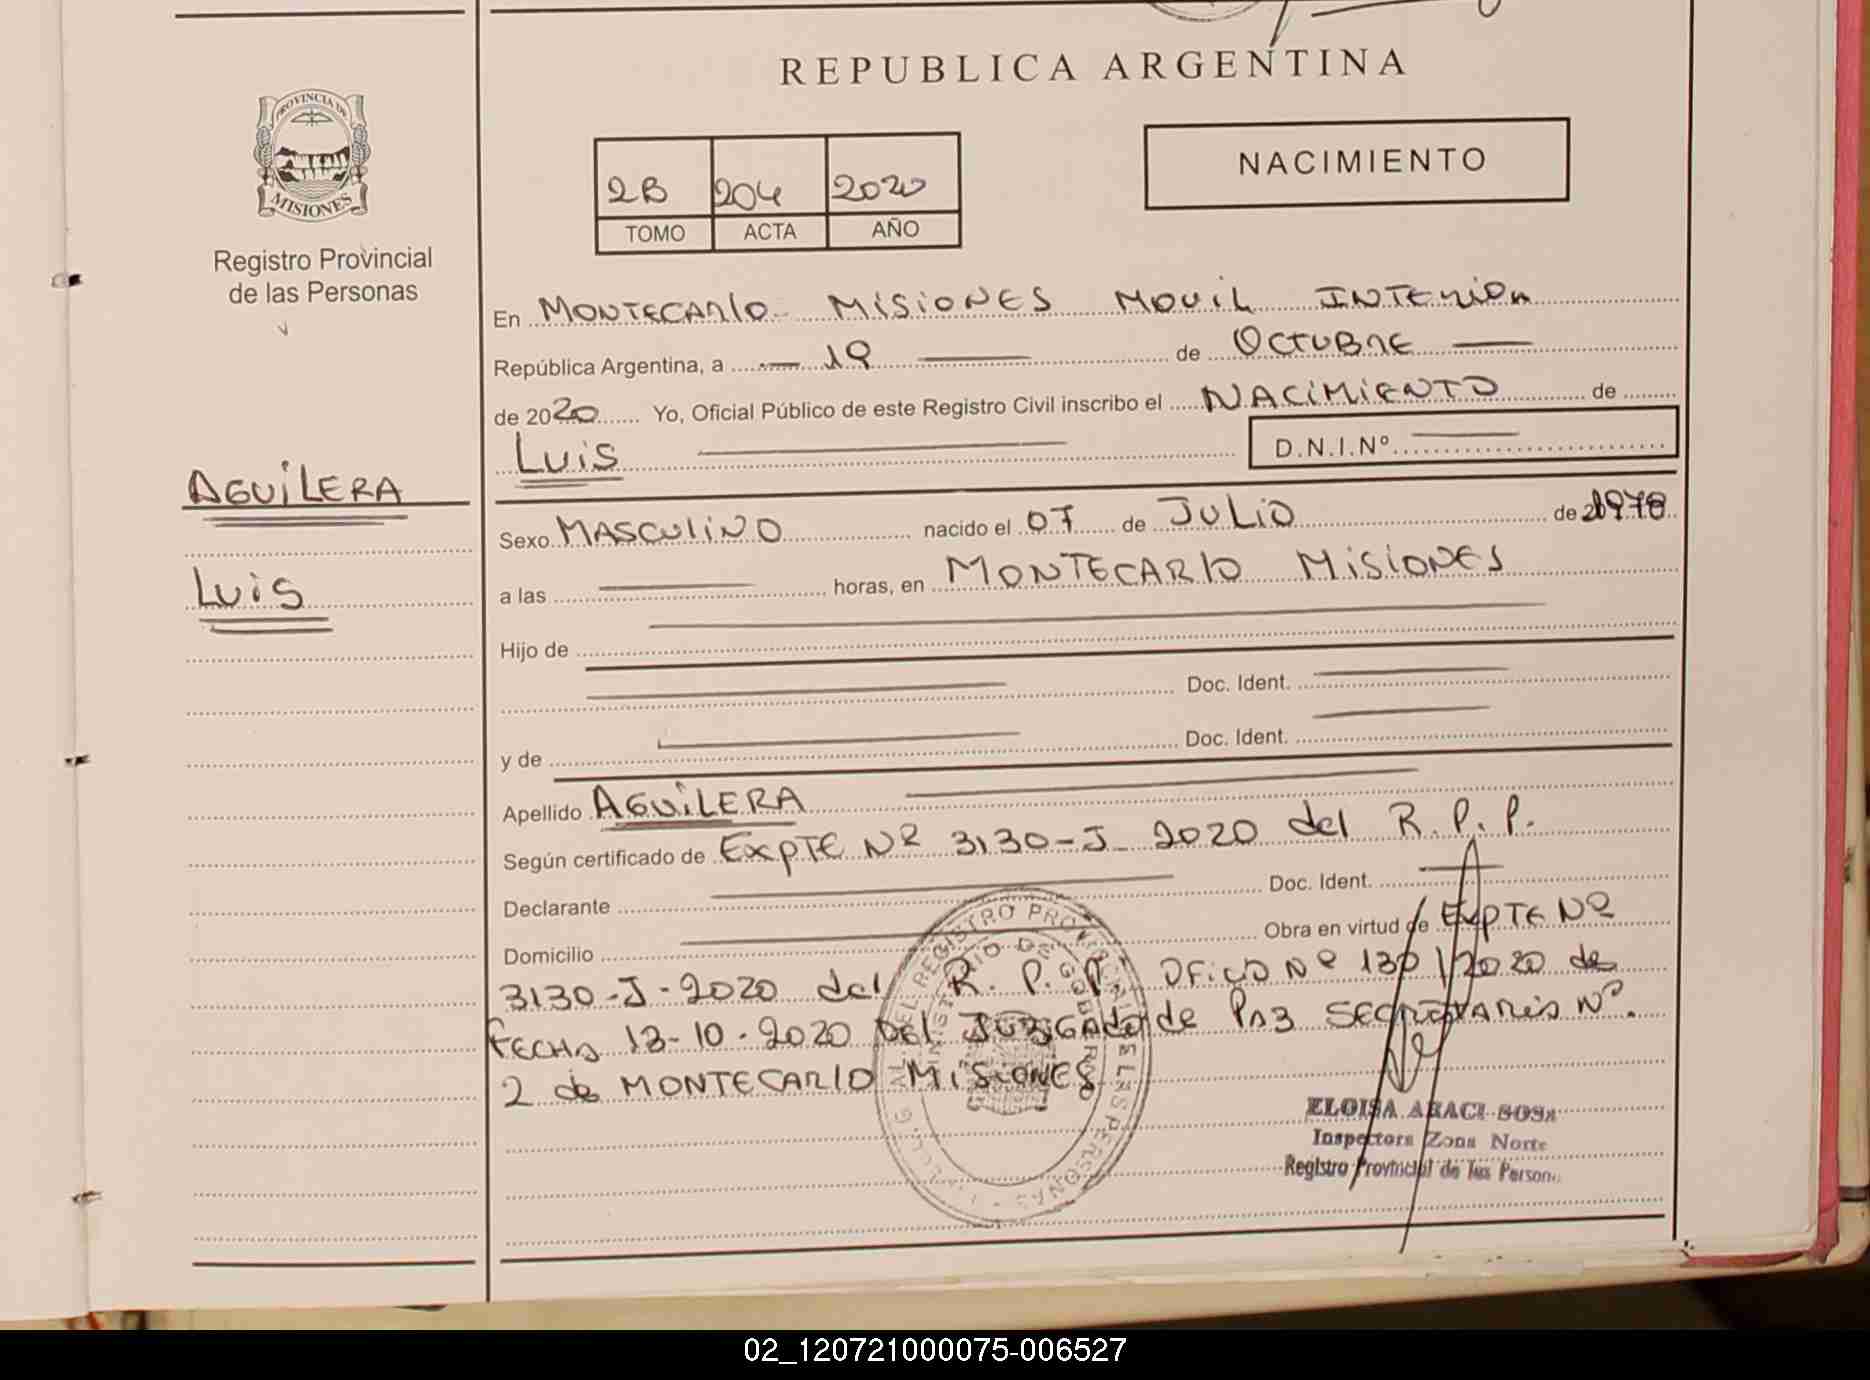 REPUBLICA ARGENTINA
PROVINCIA DE
MISIONES
Registro Provincial
de las Personas
2B 204 2020
TOMO ACTA AÑO
NACIMIENTO
En MONTECARlO - MISIONES MOVIL INTERIOR
República Argentina, a 19 de OCTUBRE
de 2020 Yo, Oficial Público de este Registro Civil inscribo el NACIMIENTO de
LUIS D.N.I.Nº
AGUILERA
LUIS
Sexo MASCULINO nacido el 07 de JULIO de 1978
a las horas, en MONTECARLO MISIONES
Hijo de
Doc. Ident.
y de Doc. Ident.
Apellido AGUILERA
Según certificado de EXPTE Nº 3130-J-2020 del R.P.P.
Declarante Doc. Ident.
Domicilio Obra en virtud de EXPTE Nº
3130-J-2020 del R.P.P. OFICIO Nº 130/2020 de
FECHA 13-10-2020 DEL JUZGADO de PAZ SECRETARIA Nº.
2 de MONTECARLO MISIONES
ELOISA ARACI SOSA
Inspectora Zona Norte
Registro Provincial de las Person
02_120721000075-006527